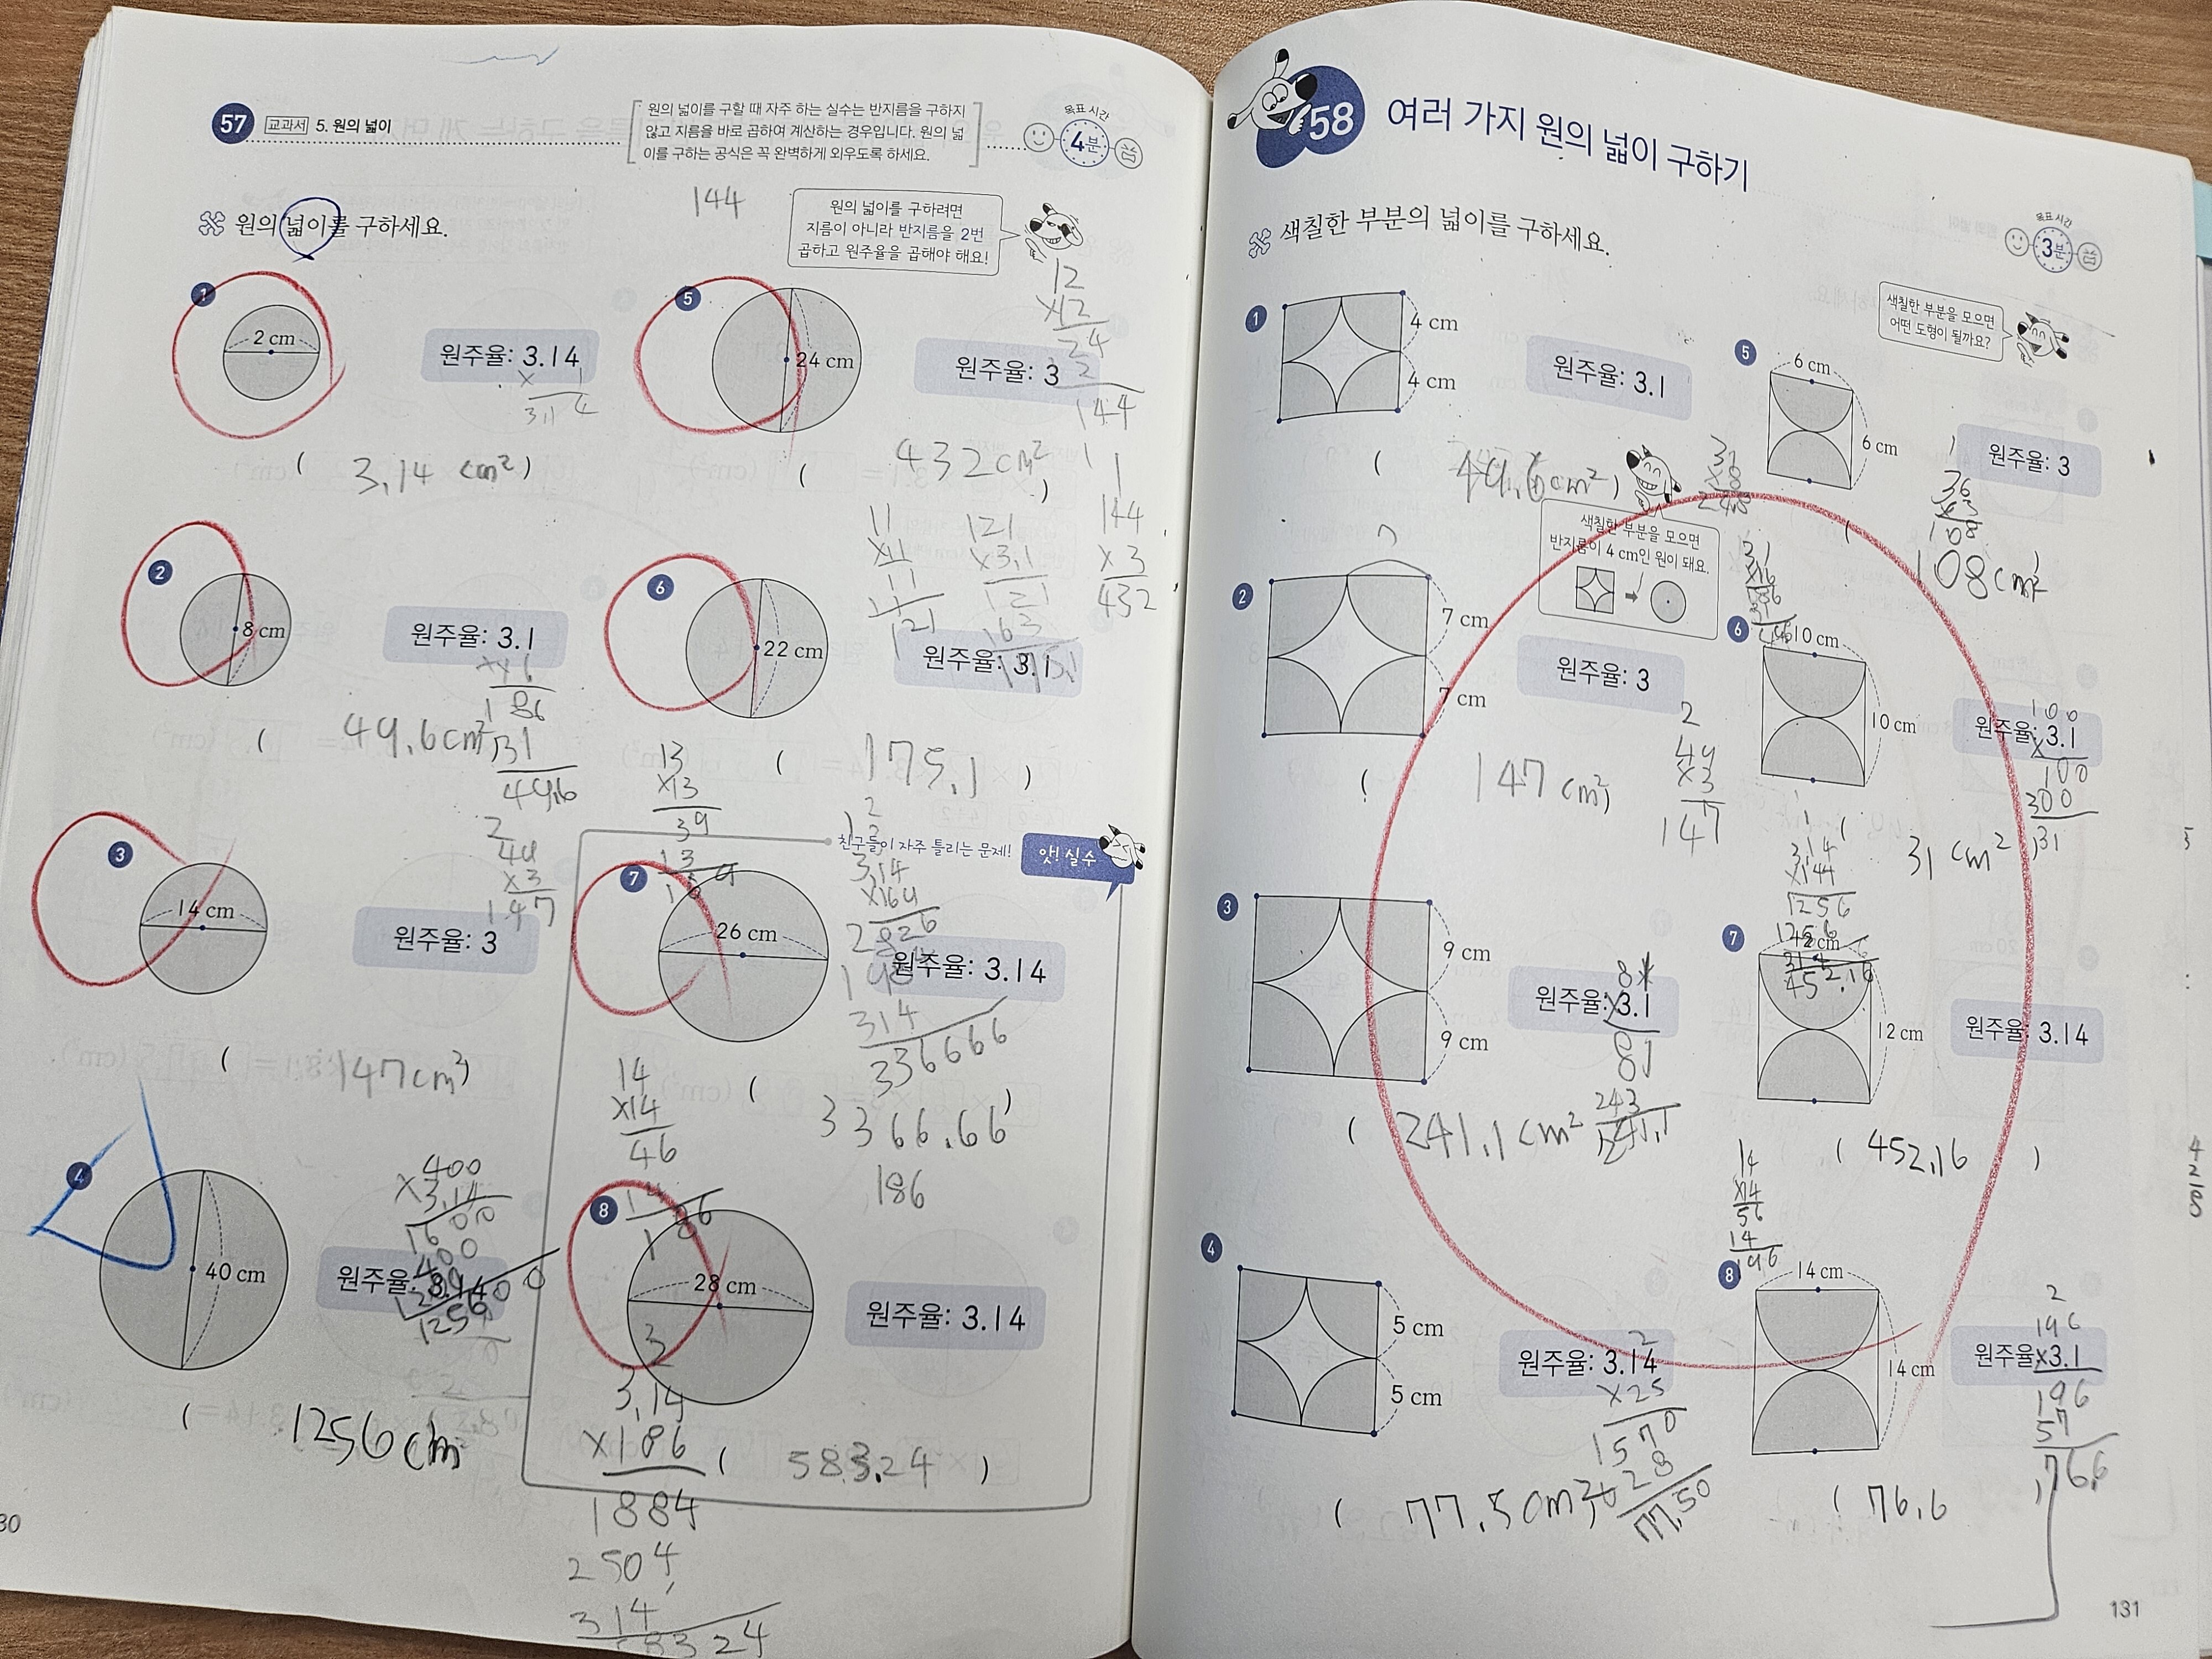 57 교과서 5. 원의 넓이
원의 넓이를 구할 때 자주 하는 실수는 반지름을 구하지
않고 지름을 바로 곱하여 계산하는 경우입니다. 원의 넓
이를 구하는 공식은 꼭 완벽하게 외우도록 하세요.
목표 시간
4분
원의 넓이를 구하세요.
144
원의 넓이를 구하려면
지름이 아니라 반지름을 2번
곱하고 원주율을 곱해야 해요!
1
2 cm
원주율: 3.14
( 3.14 cm² )
2
8 cm
원주율: 3.1
( 49.6 cm²
3
14 cm
원주율: 3
( 147 cm²)
4
40 cm
원주율: 3.14
( 1256 cm
5
24 cm
원주율: 3
12
×12
24
144
( 432 cm² )
144
× 3
432
6
22 cm
원주율: 3.1
( 175.1 )
친구들이 자주 틀리는 문제!
앗! 실수
7
26 cm
원주율: 3.14
( 3366.66 )
186
14
×14
46
8
28 cm
원주율: 3.14
3.14
×186
( 583.24 )
1884
2504
314
58324
58 여러 가지 원의 넓이 구하기
색칠한 부분의 넓이를 구하세요.
목표 시간
3분
1
4 cm
4 cm
원주율: 3.1
( 49.6 cm² )
색칠한 부분을 모으면
반지름이 4 cm인 원이 돼요.
2
7 cm
7 cm
원주율: 3
( 147 cm²)
2
49
×3
147
3
9 cm
9 cm
원주율: 3.1
( 241.1 cm²
4
5 cm
5 cm
원주율: 3.14
×25
1570
( 77.5 cm²
77.50
색칠한 부분을 모으면
어떤 도형이 될까요?
5
6 cm
6 cm
원주율: 3
( 108 cm²
6
10 cm
10 cm
원주율: 3.1
31 cm² )
7
12 cm
원주율: 3.14
( 452.16 )
14
×14
56
14
196
8
14 cm
14 cm
원주율
×3.1
196
57
76.6
( 76.6
131